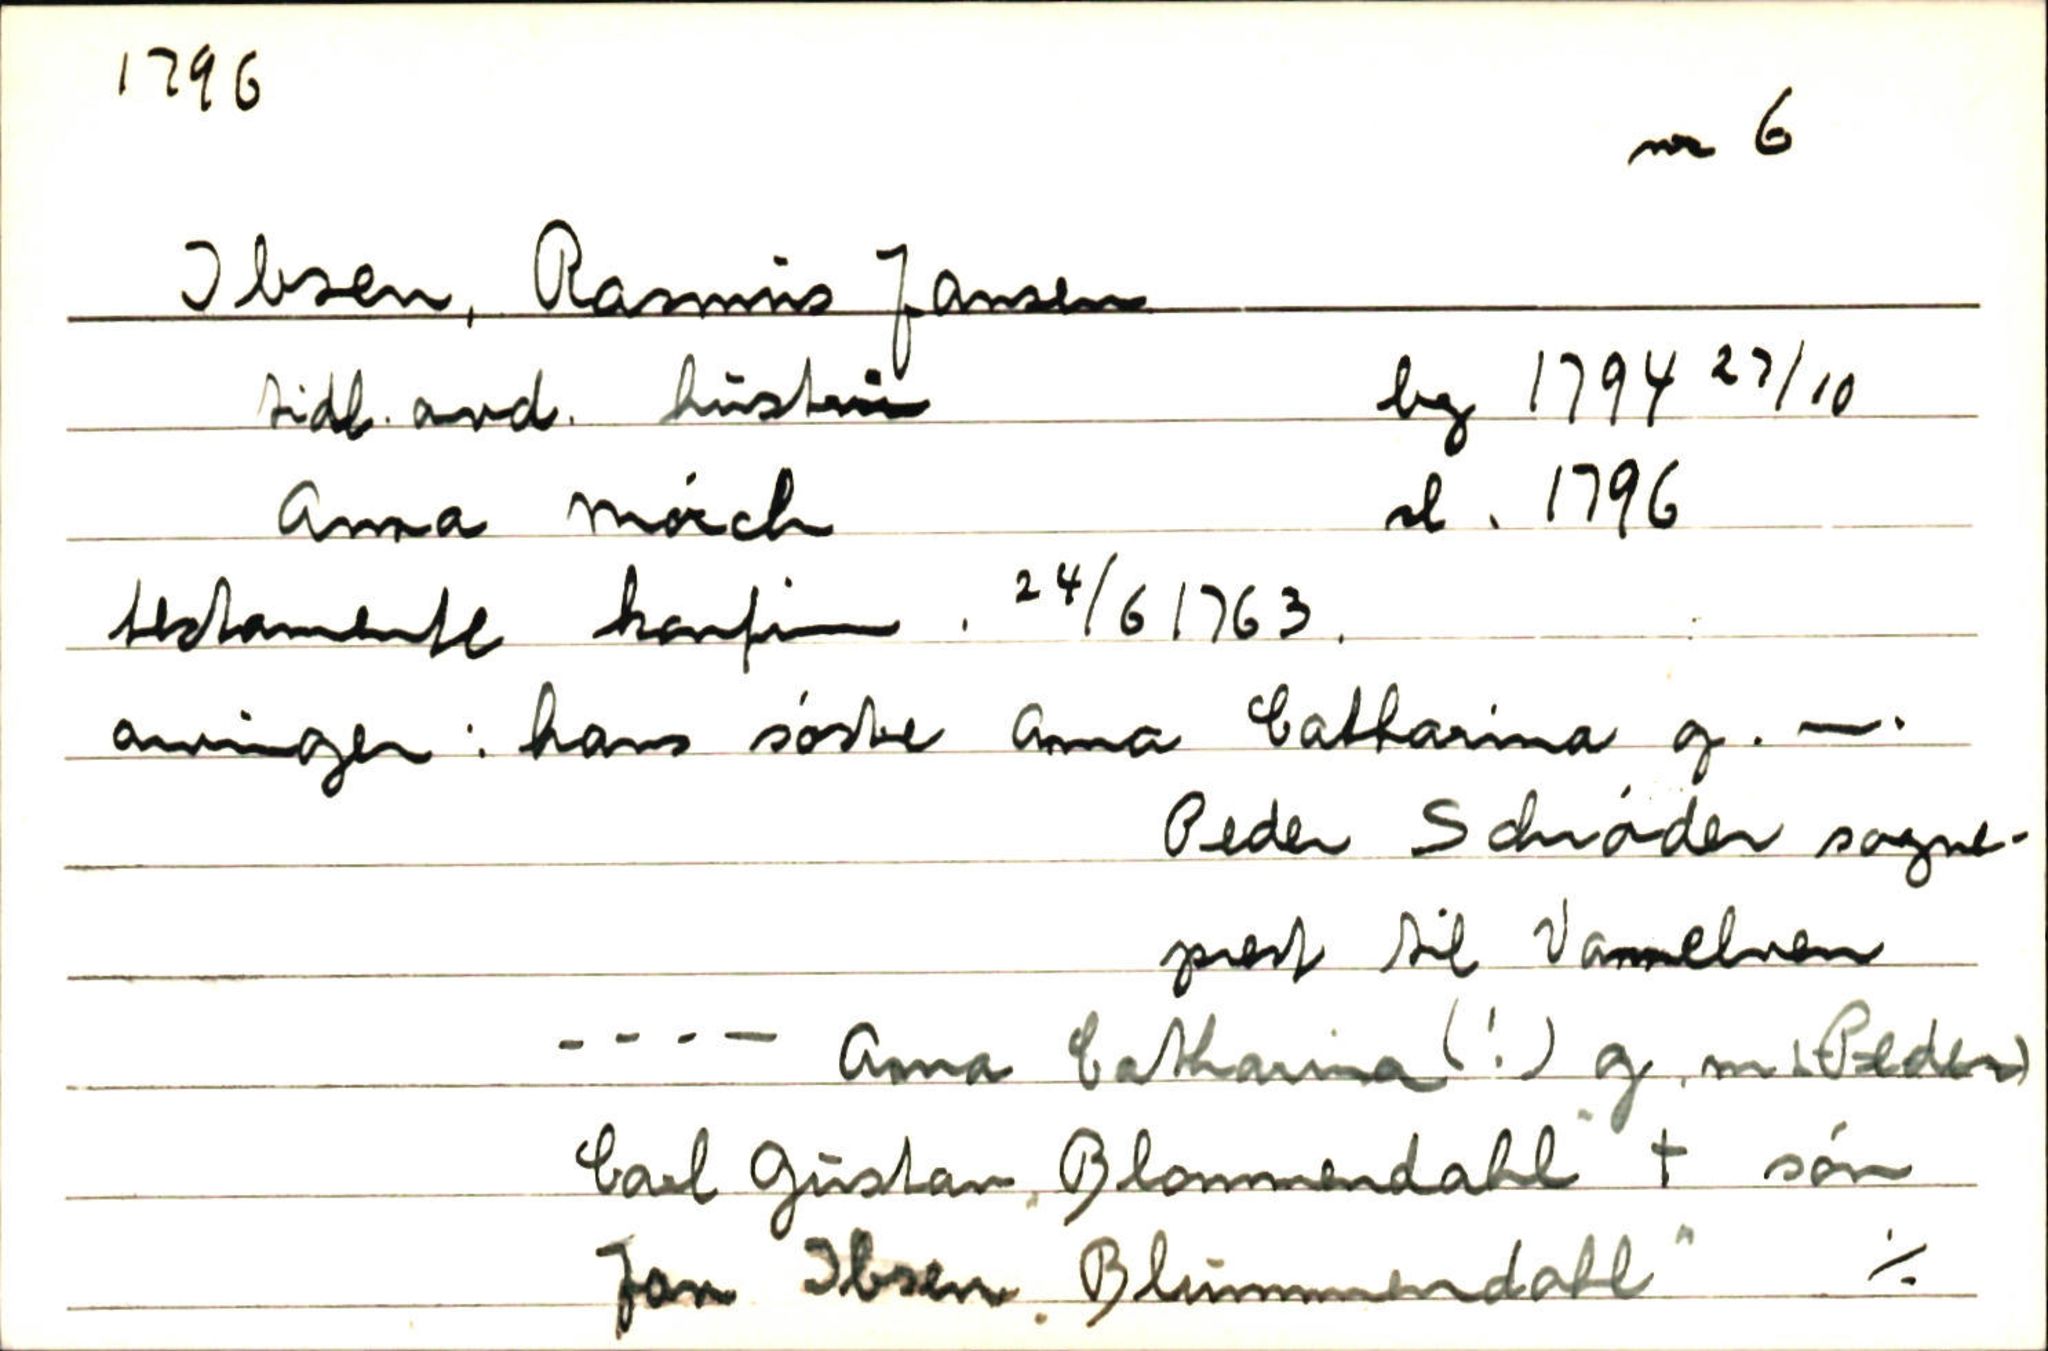 1796
nr 6
Ibsen, Rasmus Jansen
tidl. avd. hustru bg 1794 27/10
Anna Mörch sl. 1796
testamente konfirm. 24/6 1763.
arvinger: hans söste Anna Catharina g. —.
Peder Schröder sogne-
prest til Vannelven
- - - — Anna Catharina (!) g. m. (Peder)
Carl Gustav "Blommendahl" † sön
Jan Ibsen "Blummendahl" ·/.